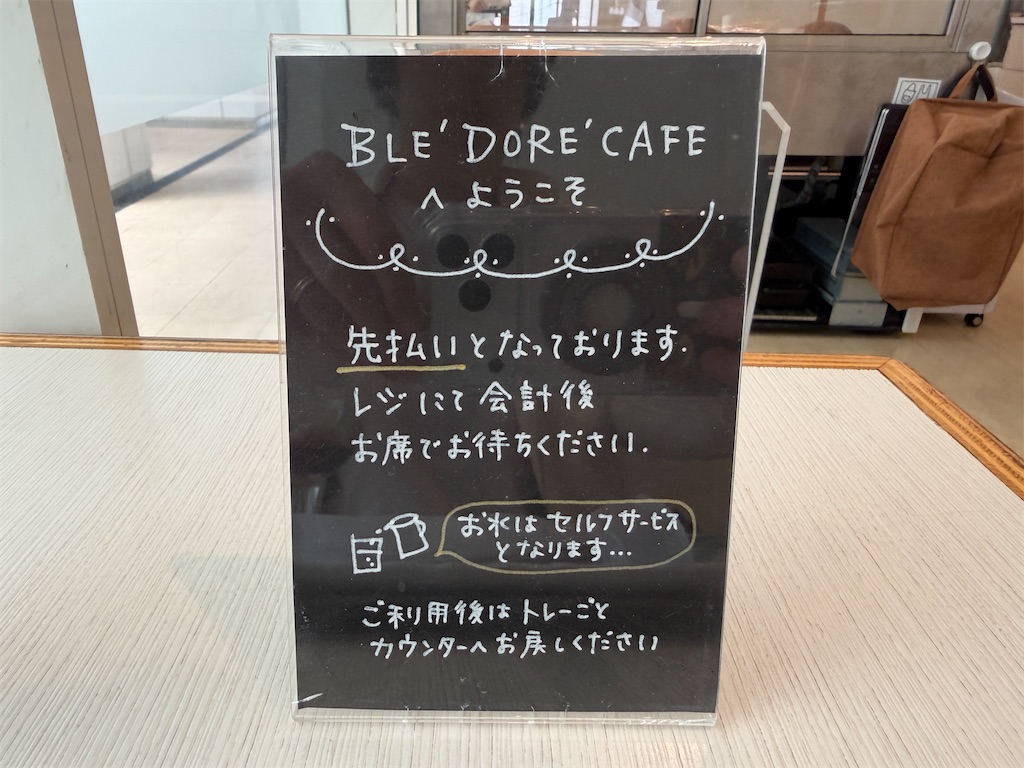 BLE' DORE' CAFE
へようこそ
先払いとなっております.
レジにて会計後
お席でお待ちください.
お水はセルフサービス
となります...
ご利用後はトレーごと
カウンターへお戻しください